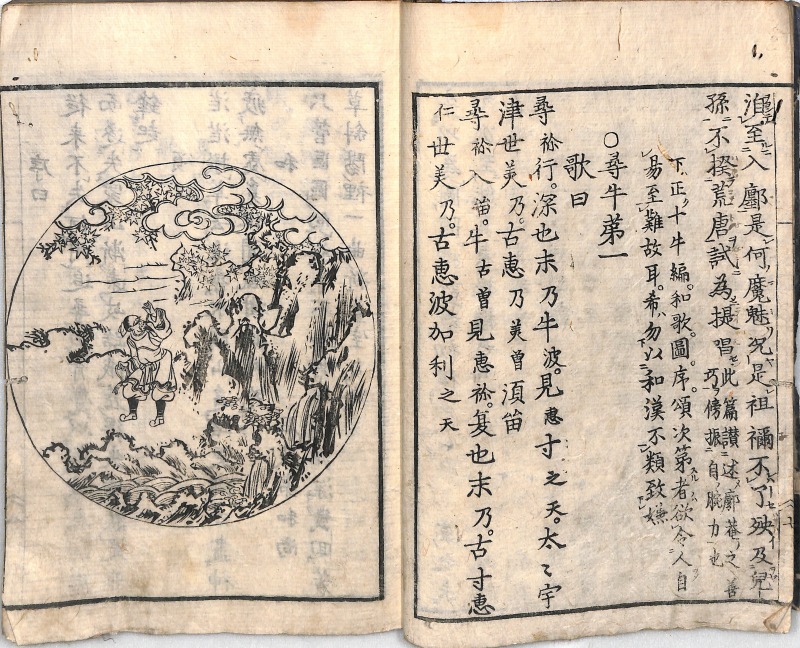 洎至入鄽是何魔魅況是祖禰不了殃及兒
孫不揆荒唐試為提唱
此篇讃述廓菴之善
巧傍振自腕力也
下正十牛編。和歌。圖。序。頌次第者欲令人自
易至難故耳。希勿以和漢不類致嫌
〇尋牛第一
歌曰
尋祢行。深也末乃牛波。見恵寸之天。太〻宇
津世美乃。古恵乃美曽須笛
尋祢入笛。牛古曽見恵祢。夏也末乃。古寸恵
仁世美乃。古恵波加利之天